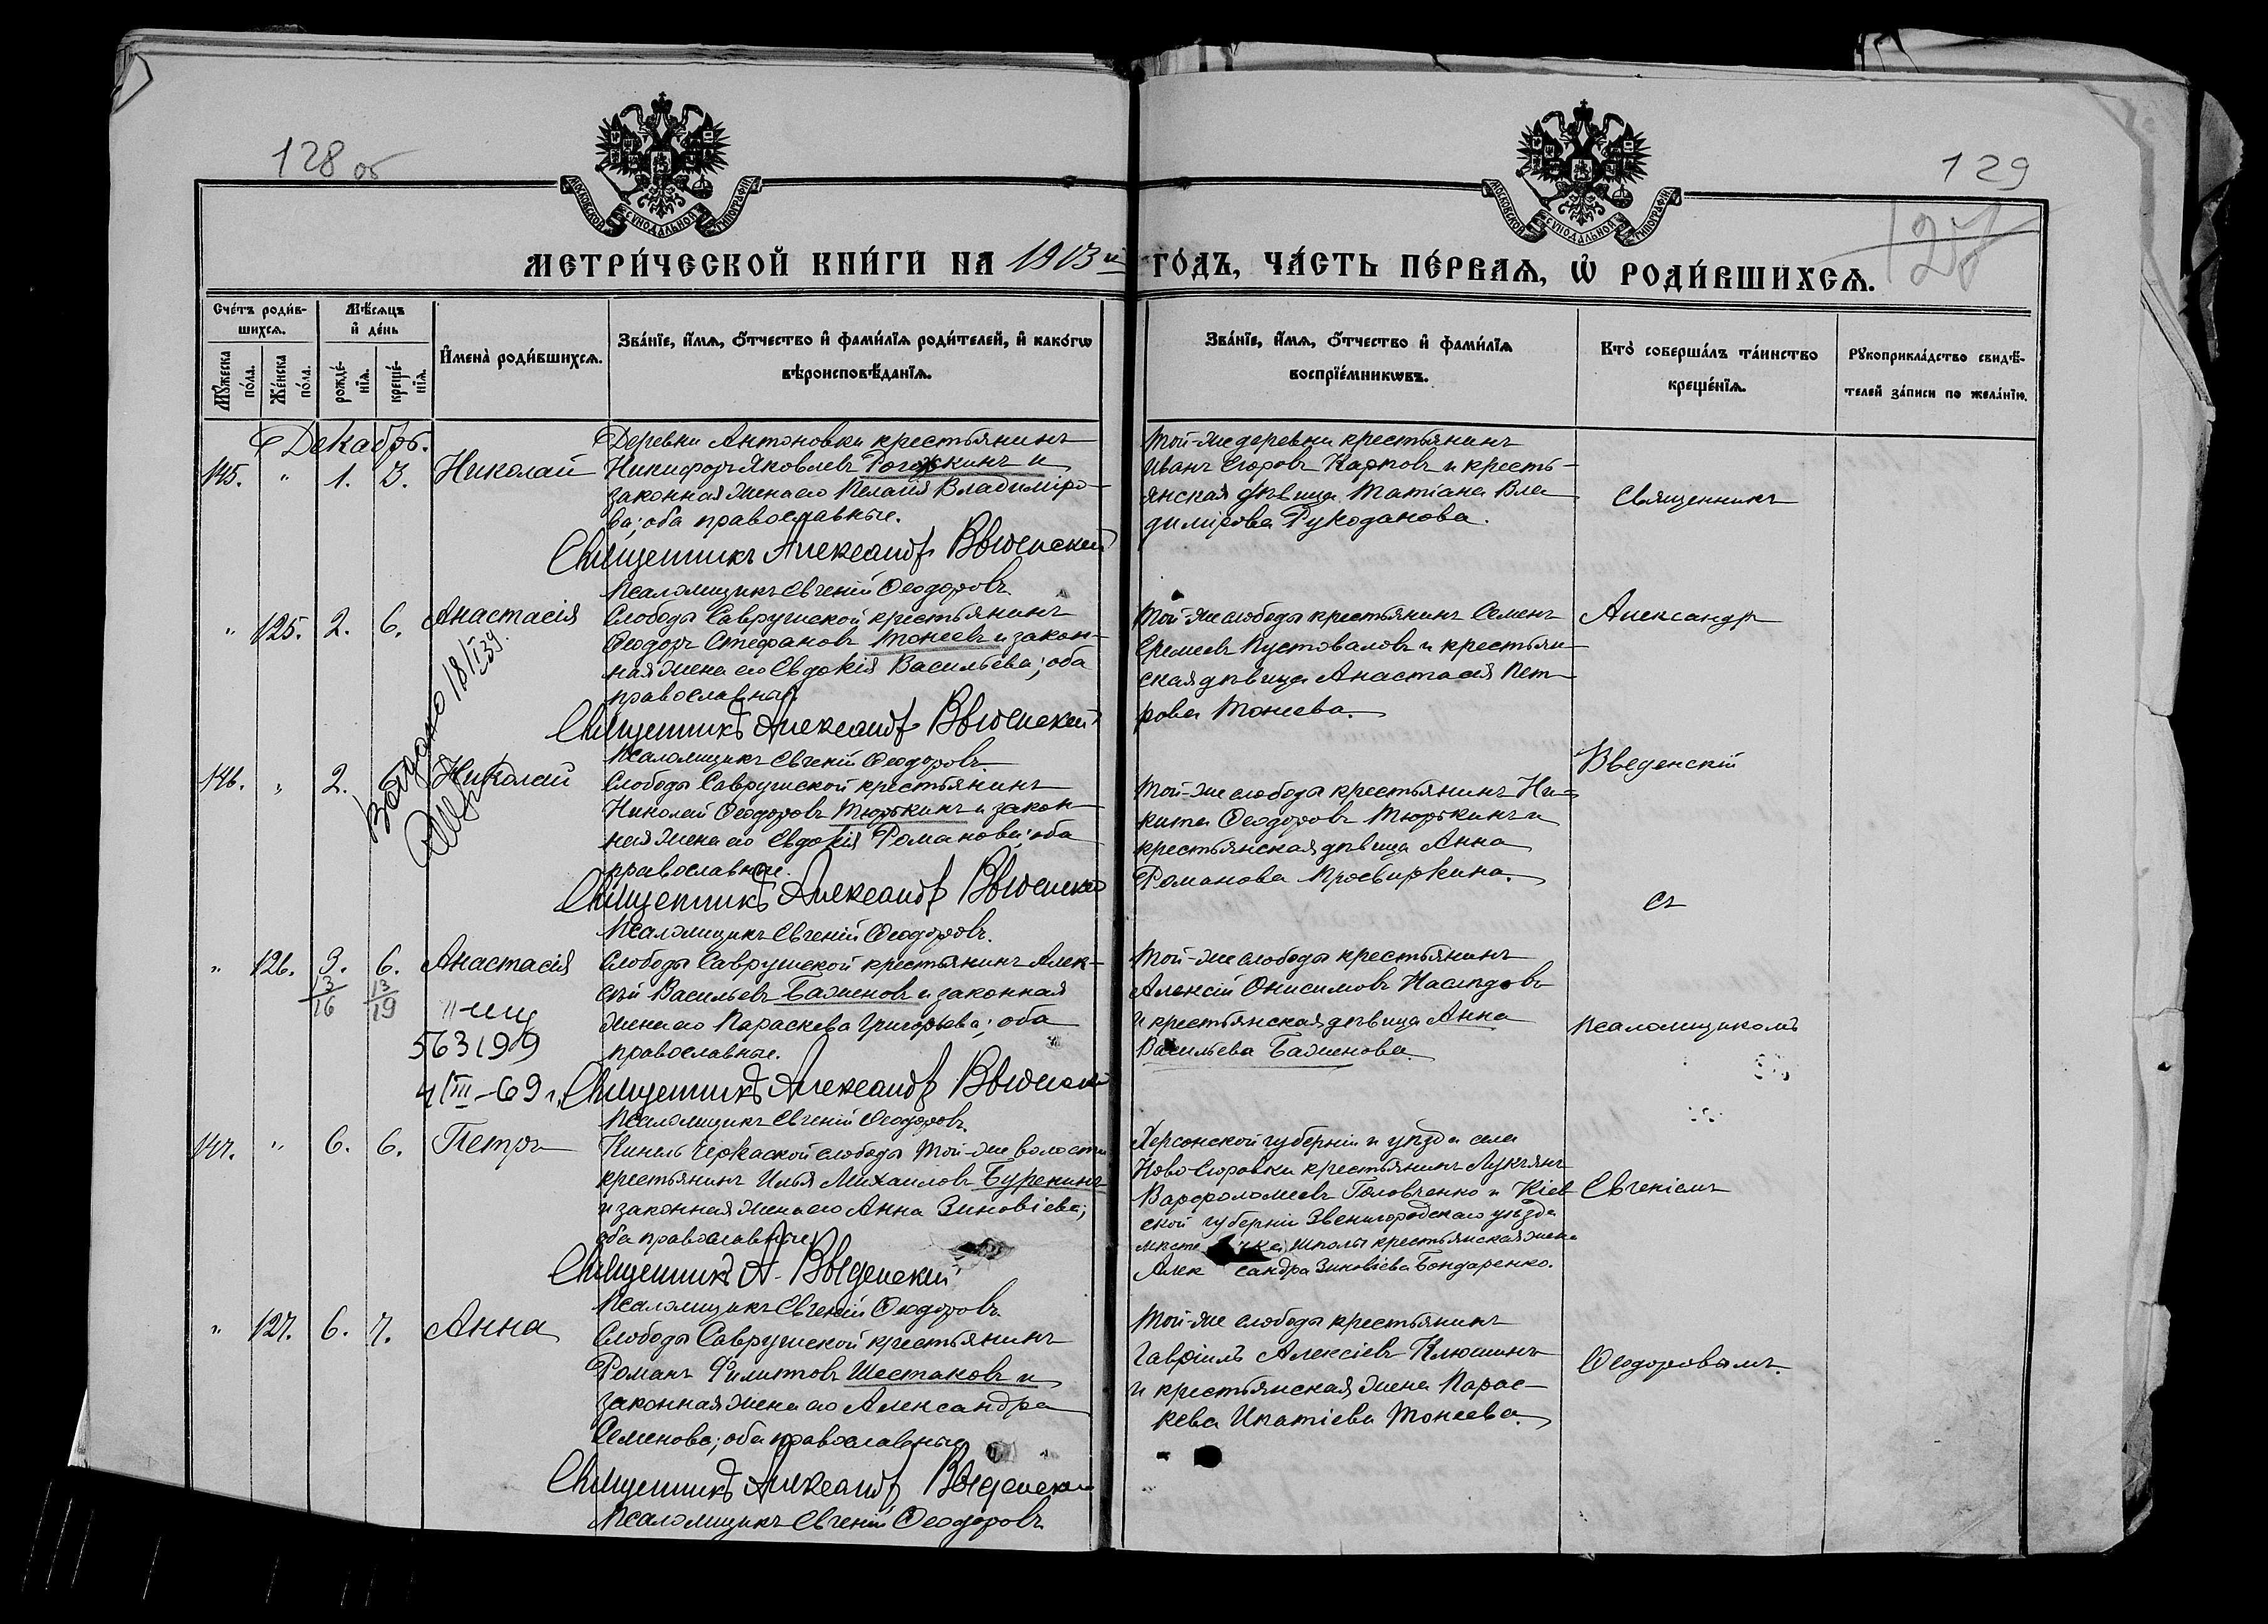 128 об
129
127
МОСКОВСКОЙ СѴНОДАЛЬНОЙ ТИПОГРАФІИ
МОСКОВСКОЙ СѴНОДАЛЬНОЙ ТИПОГРАФІИ
МЕТРИ́ЧЕСКОЙ КНИ́ГИ НА 1913й ГО́ДЪ, ЧА́СТЬ ПЕ́РВАѦ, Ѡ҆ РОДИ́ВШИХСѦ.
Сче́тъ роди́в-
шихсѧ.
Мꙋ́жеска
по́ла.
Же́нска
по́ла.
Мѣ́сѧцъ
и҆ де́нь
рожде́-
нїѧ.
креще́-
нїѧ.
И҆мена̀ роди́вшихсѧ.
Зва́нїе, и҆́мѧ, ѻ҆́тчество и҆ фами́лїѧ роди́телей, и҆ како́гѡ
вѣроисповѣ́данїѧ.
Зва́нїе, и҆́мѧ, ѻ҆́тчество и҆ фами́лїѧ
воспрїе́мникѡвъ.
Кто̀ соверша́лъ та́инство
креще́нїѧ.
Рꙋкоприкла́дство свидѣ́-
телей за́писи по жела́нїю.
Декабрь.
145. " 1. 3. Николай
Деревни Антоновки крестьянинъ
Никифоръ Яковлевъ Рогожкинъ и
законная жена его Пелагія Владиміро-
ва; оба православные.
Священникъ Александръ Введенскій
Псаломщикъ Евгеній Ѳеодоровъ
Той-же деревни крестьянинъ
Иванъ Егоровъ Карповъ и кресть-
янская дѣвица Татіана Вла-
димірова Рукоданова.
Священникъ
" 125. 2. 6. Анастасія
Слободы Саврушской крестьянинъ
Ѳеодоръ Стефановъ Тонеевъ и закон-
ная жена его Евдокія Васильева; оба
православные.
Священникъ Александръ Введенскій
Псаломщикъ Евгеній Ѳеодоровъ
Той-же слободы крестьянинъ Семенъ
Еремеевъ Пустоваловъ и крестьян-
ская дѣвица Анастасія Пет-
рова Тонеева.
Александръ
Выдано 18/I 39.
146. " 2. Николай
Слободы Саврушской крестьянинъ
Николай Ѳеодоровъ Тюрькинъ и закон-
ная жена его Евдокія Романова; оба
православные.
Священникъ Александръ Введенскій
Псаломщикъ Евгеній Ѳеодоровъ.
Той-же слободы крестьянинъ Ни-
кита Ѳеодоровъ Тюрькинъ и
крестьянская дѣвица Анна
Романова Просвиркина.
Введенскій
съ
" 126. 3. 6. Анастасія
13/16 13/19
563199
4/III-69 г.
Слободы Саврушской крестьянинъ Алек-
сѣй Васильевъ Баженовъ и законная
жена его Параскева Григорьева; оба
православные.
Священникъ Александръ Введенскій
Псаломщикъ Евгеній Ѳеодоровъ.
Той-же слободы крестьянинъ
Алексій Онисимовъ Наслѣдовъ
и крестьянская дѣвица Анна
Васильева Баженова.
псаломщикомъ
147. " 6. 6. Петръ
Кинель Черкаской слободы Той-же волости
крестьянинъ Илья Михаиловъ Буренинъ
и законная жена его Анна Зиновіева;
оба православные.
Священникъ А. Введенскій
Псаломщикъ Евгеній Ѳеодоровъ.
Херсонской губерніи и уѣзда села
Ново Егоровки крестьянинъ Лукьянъ
Варфоломеевъ Головченко и Кіев
ской губерніи Звенигородскаго уѣзда
мѣстечка Шполы крестьянская жена
Александра Зиновіева Бондаренко.
Евгеніемъ
" 127. 6. 7. Анна
Слободы Саврушской крестьянинъ
Романъ Филиповъ Шестаковъ и
законная жена его Александра
Семенова; оба православные
Священникъ Александръ Введенскій
Псаломщикъ Евгеній Ѳеодоровъ
Той-же слободы крестьянинъ
Гавріилъ Алексіевъ Клюшинъ
и крестьянская жена Парас-
кева Ипатіева Тонеева.
Ѳеодоровымъ.